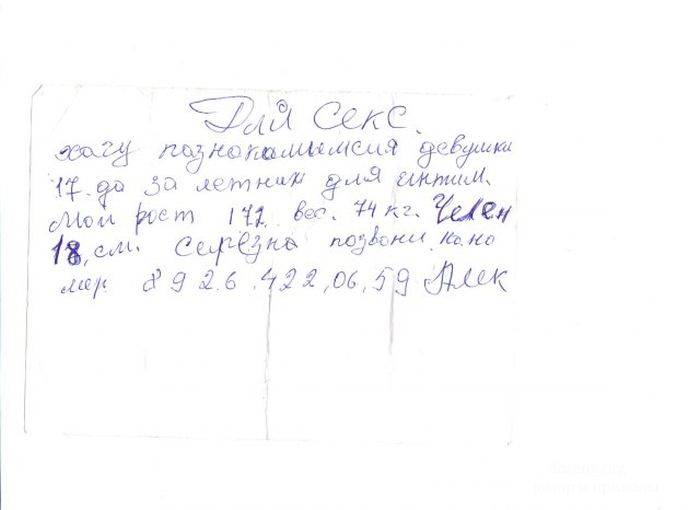 Для секс.
хачу пазнокамымсия девушки
17. до За летних для интим.
мой рост 172 вес. 74 кг. Челен
18, см. Серёзна позвони. кано
мер. 8 9 2.6 .422,06,59 Алек